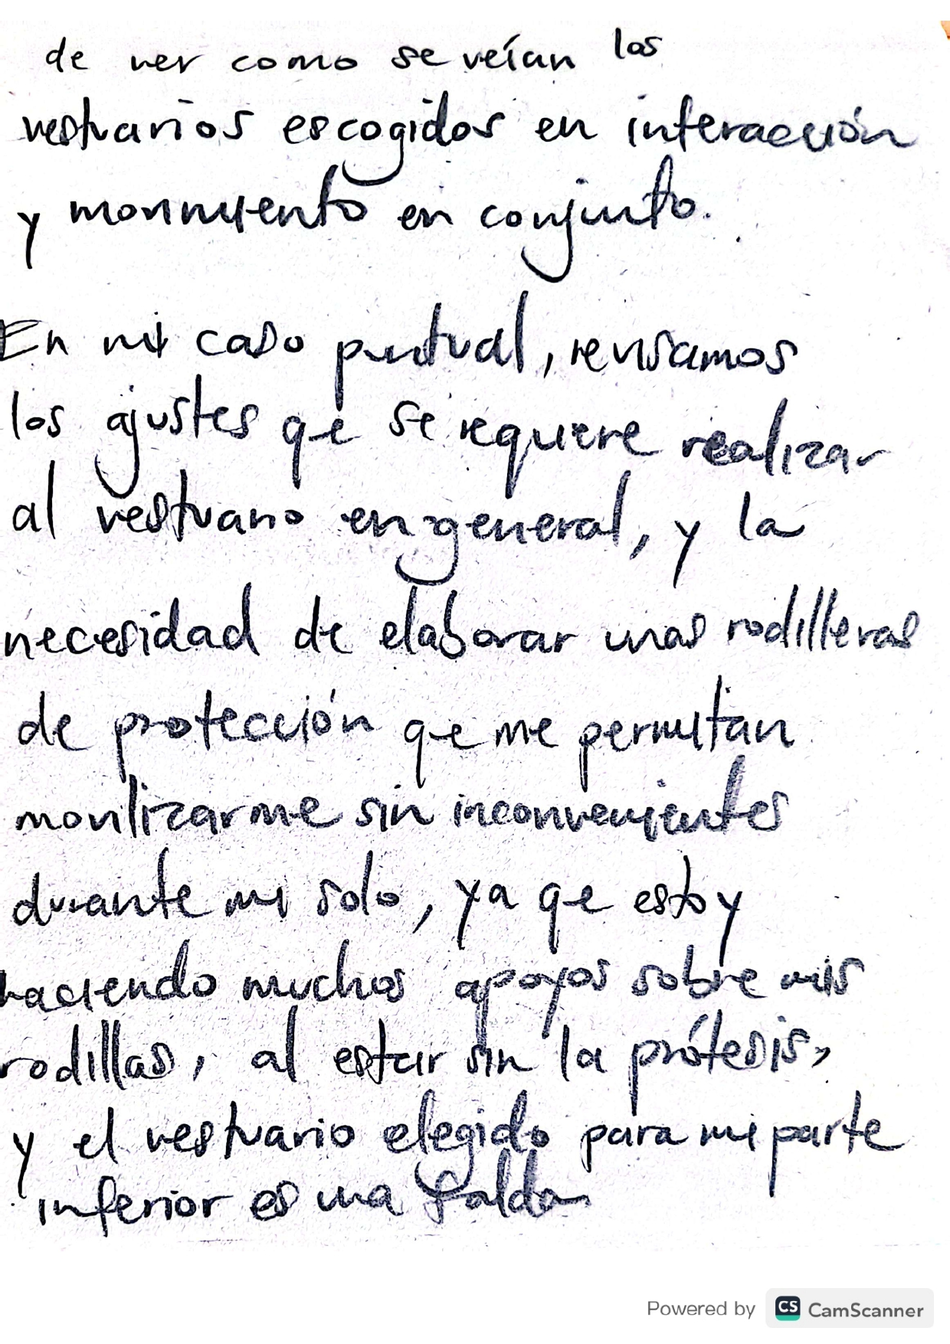 de ver como se veían los
vestuarios escogidos en interacción
y movimiento en conjunto.
En mi caso puntual, revisamos
los ajustes qe se requiere realizar
al vestuario en general, y la
necesidad de elaborar unas rodilleras
de protección qe me permitan
movilizarme sin inconvenientes
durante mi solo, ya qe estoy
haciendo muchos apoyos sobre mis
rodillas, al estar sin la prótesis,
y el vestuario elegido para mi parte
inferior es una falda
Powered by CS CamScanner